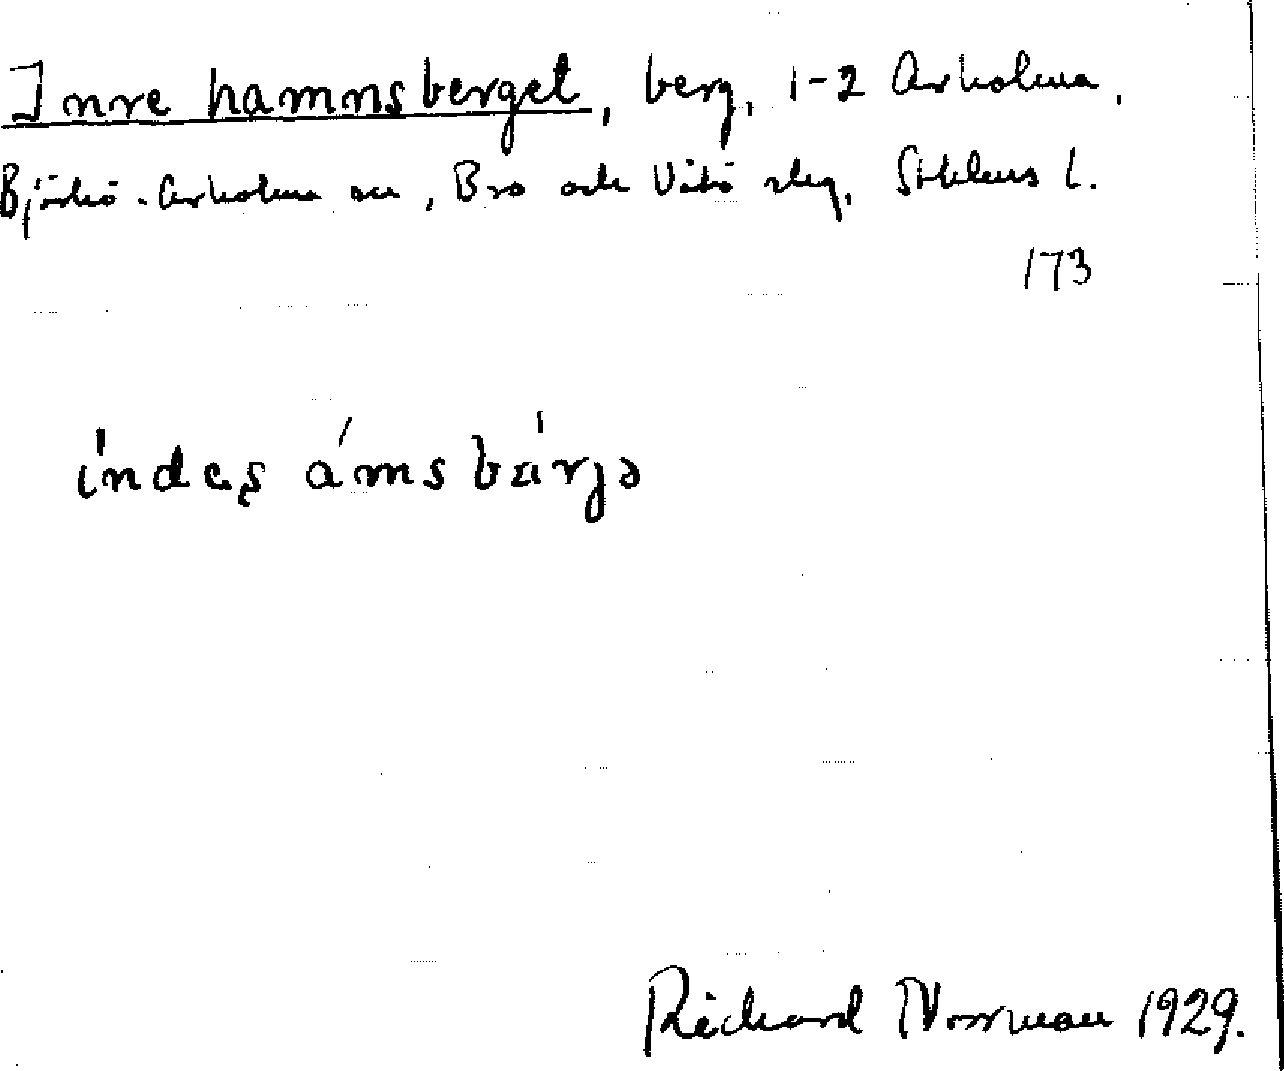 Inre hamnsberget, berg, 1-2 Arholma,
Björkö-Arholma sn, Bro och Vätö slg, Sthlms l.
173
índas ámsbárja
Richard Norrman 1929.